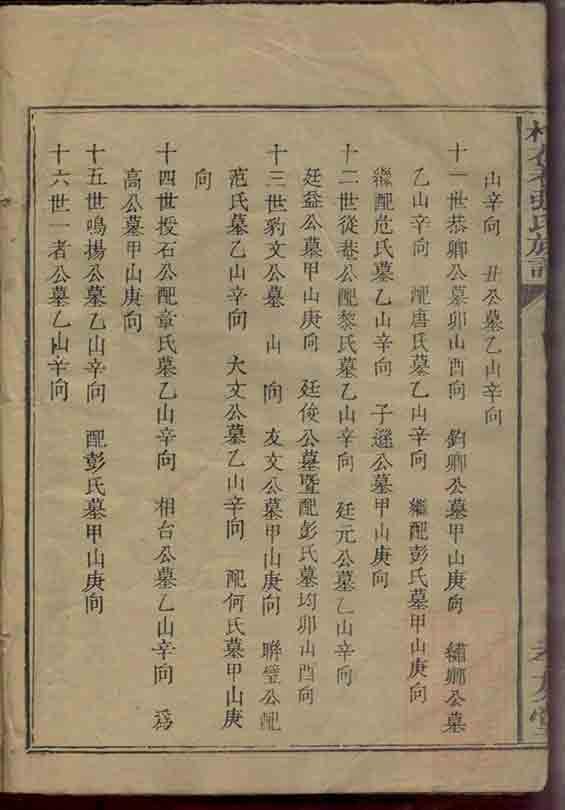 山辛向　丑公墓乙山辛向
十一世恭卿公墓卯山酉向　鈞卿公墓甲山庚向　繡卿公墓
乙山辛向　配唐氏墓乙山辛向　繼配彭氏墓甲山庚向
繼配危氏墓乙山辛向　子遜公墓甲山庚向
十二世從菴公配黎氏墓乙山辛向　廷元公墓乙山辛向
廷益公墓甲山庚向　廷俊公墓暨配彭氏墓均卯山酉向
十三世豹文公墓　山　向　友文公墓甲山庚向　聯璧公配
范氏墓乙山辛向　大文公墓乙山辛向　配何氏墓甲山庚
向
十四世授石公配章氏墓乙山辛向　相台公墓乙山辛向　為
高公墓甲山庚向
十五世鳴揚公墓乙山辛向　配彭氏墓甲山庚向
十六世一者公墓乙山辛向